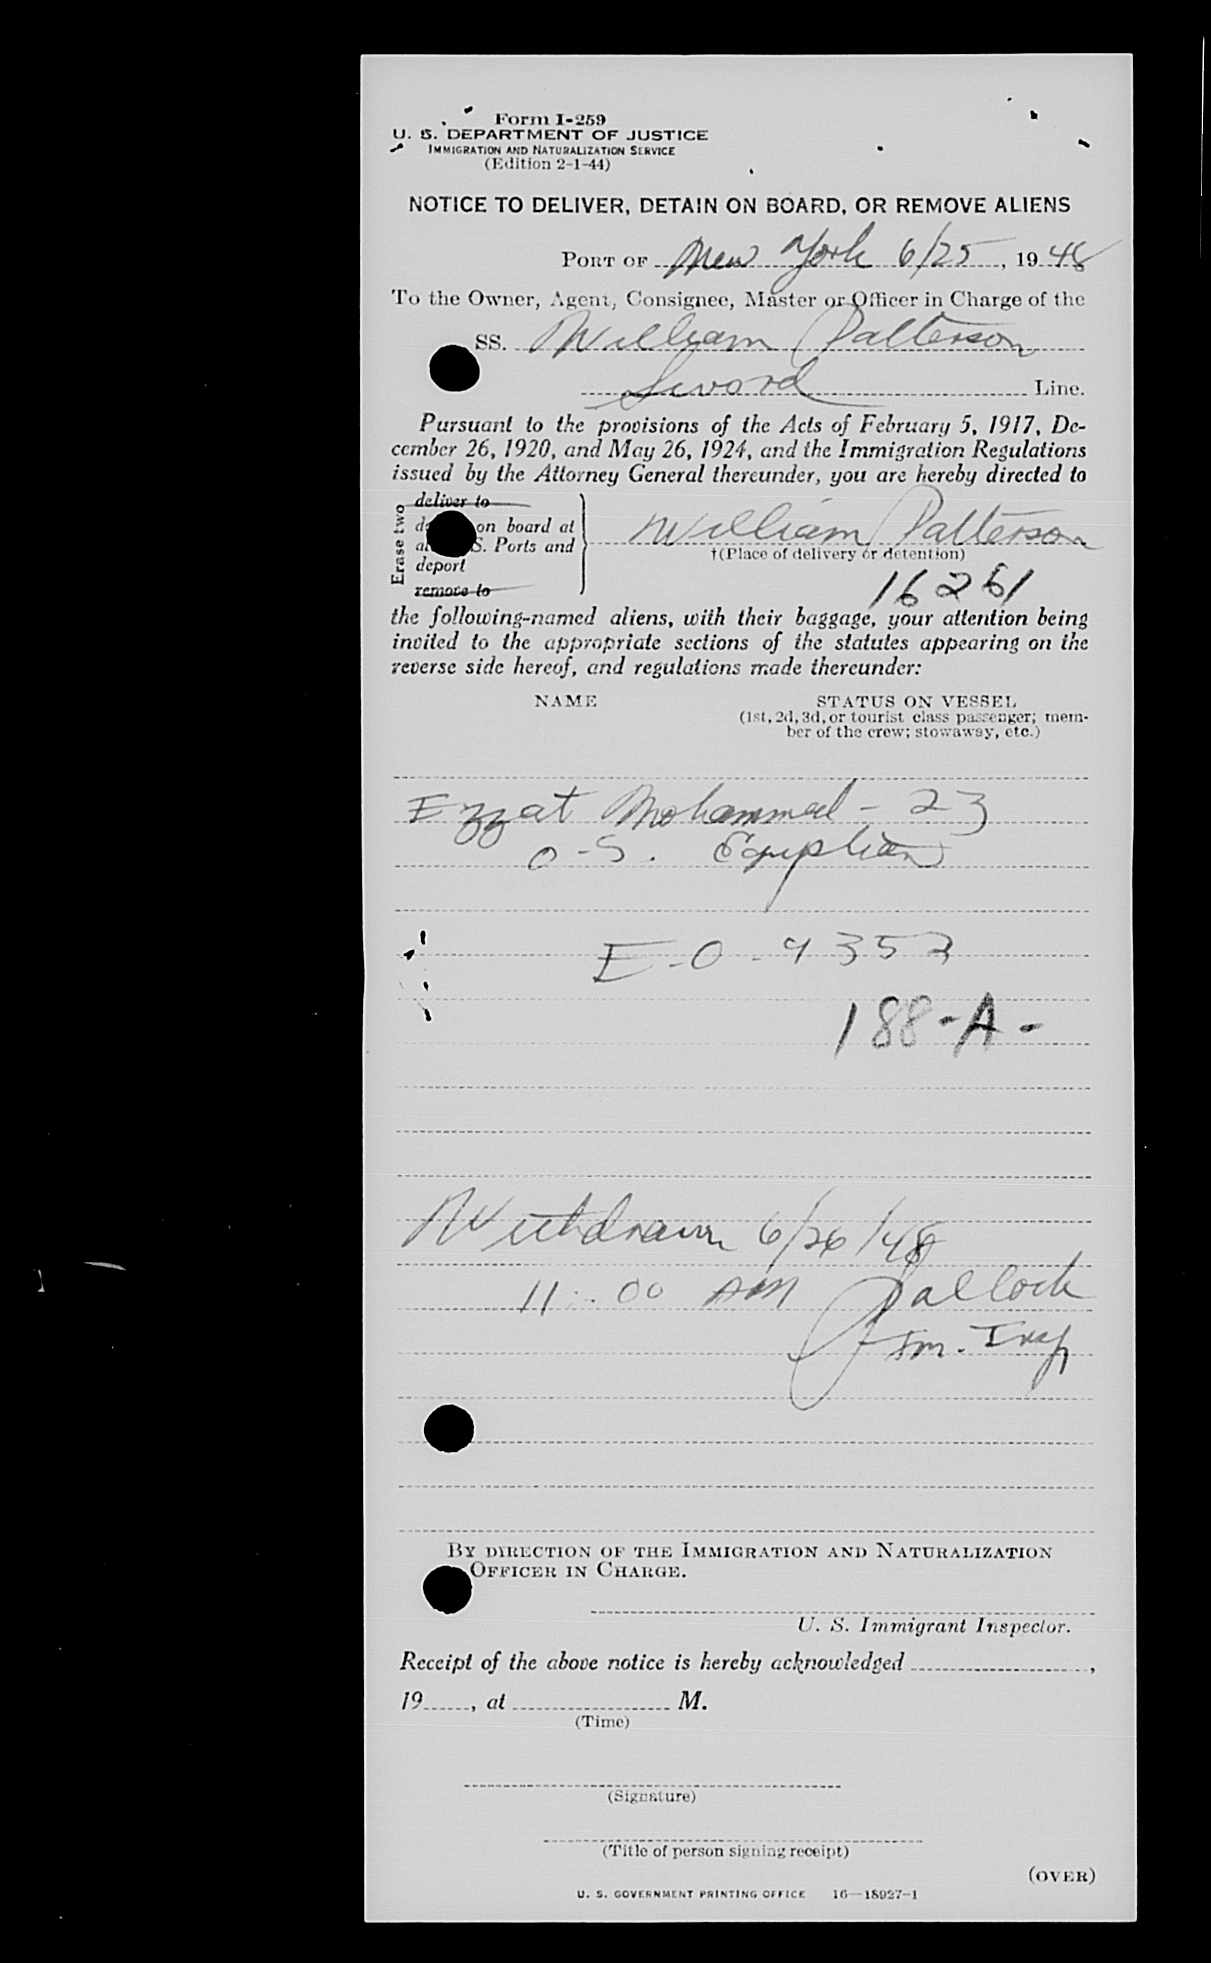 Form I-259
U. S. DEPARTMENT OF JUSTICE
IMMIGRATION AND NATURALIZATION SERVICE
(Edition 2-1-44)
NOTICE TO DELIVER, DETAIN ON BOARD, OR REMOVE ALIENS
PORT OF New York 6/25, 1948
To the Owner, Agent, Consignee, Master or Officer in Charge of the
SS. William Patterson
Sword Line.
Pursuant to the provisions of the Acts of February 5, 1917, De-
cember 26, 1920, and May 26, 1924, and the Immigration Regulations
issued by the Attorney General thereunder, you are hereby directed to
Erase two
deliver to
on board at
S. Ports and
deport
remove to
William Patterson
†(Place of delivery or detention)
16261
the following-named aliens, with their baggage, your attention being
invited to the appropriate sections of the statutes appearing on the
reverse side hereof, and regulations made thereunder:
NAME STATUS ON VESSEL
(1st, 2d, 3d, or tourist class passenger; mem-
ber of the crew; stowaway, etc.)
Ezzat Mohammed - 23
O-S. Egyptian
E-O-9352
188-A-
Withdrawn 6/26/48
11:00 AM
Im. Insp
BY DIRECTION OF THE IMMIGRATION AND NATURALIZATION
OFFICER IN CHARGE.
U. S. Immigrant Inspector.
Receipt of the above notice is hereby acknowledged ,
19 , at M.
(Time)
(Signature)
(Title of person signing receipt)
(OVER)
U. S. GOVERNMENT PRINTING OFFICE 16—18927-1